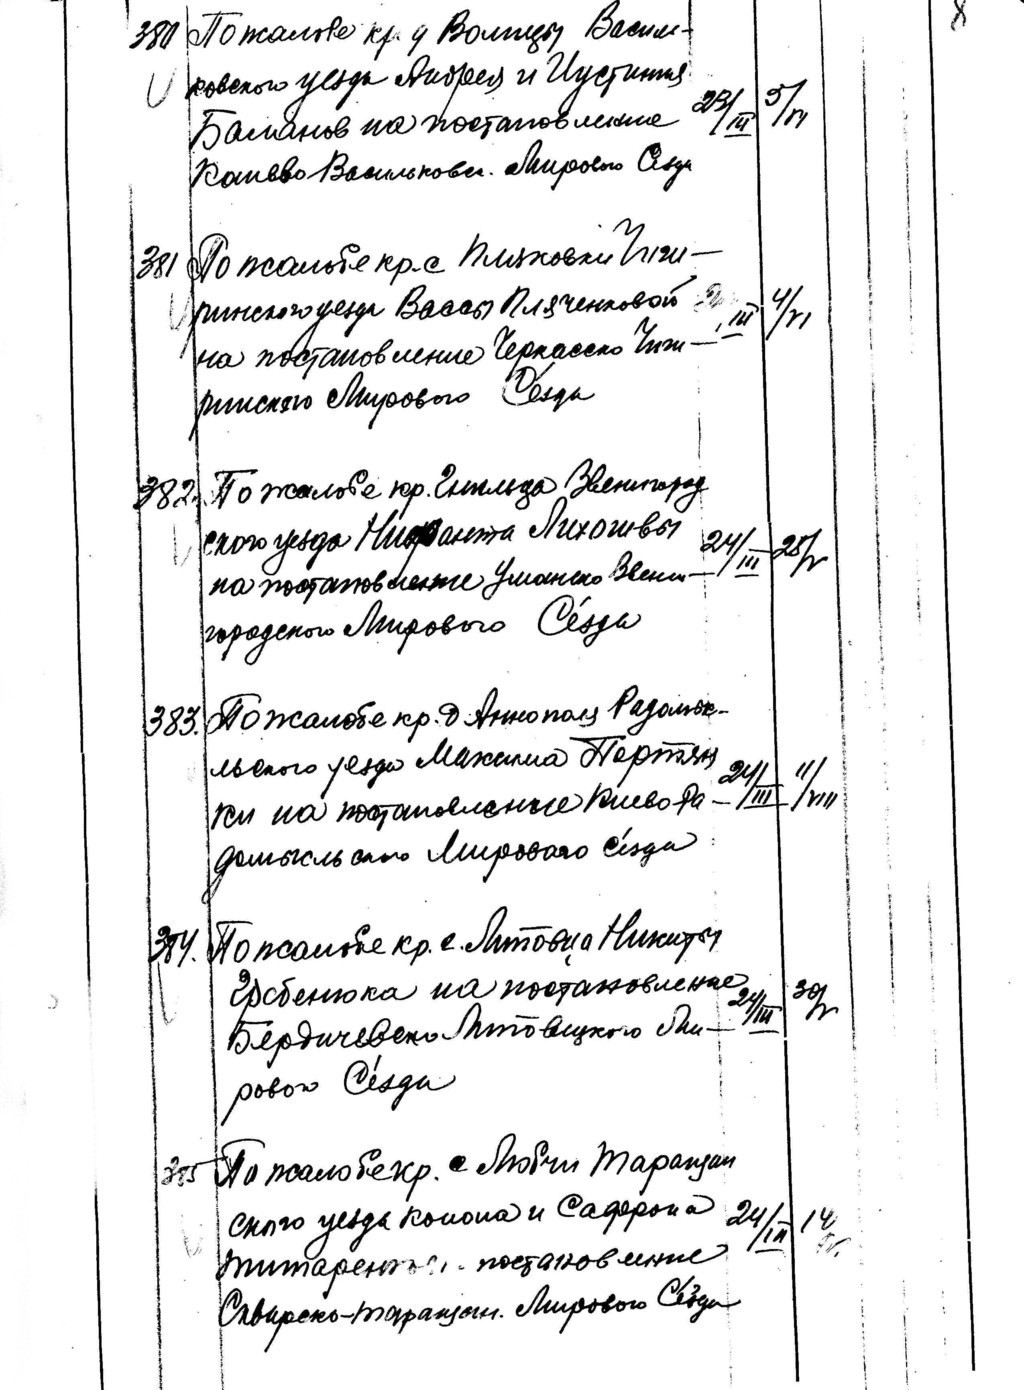 8
380 По жалобе кр. д Волицы Василь-
ковского уезда Андрея и Иустиния
Баланов на постановление 23/III 5/VI
Киево Васильковск. Мирового Сезда
381 По жалобе кр. с Пляховки Чиги-
ринского уезда Вассы Пляченковой III 4/VI
на постановление Черкасско Чиги-
ринского Мирового Сезда
382. По жалобе кр. Гнильца Звенигород
ского уезда Лихошвы 24/III 25/V
на постановление Уманско Звени-
городского Мирового Сезда
383. По жалобе кр. д Аннополя Радомы-
льского уезда Максима Портян 24/III 11/VIII
ки на постановление Киево Ра-
домысльского Мирового Сезда
384. По жалобе кр. с. Литовца Никиты
Гребенюка на постановление 24/III 30/V
Бердичевско Липовецкого Ми-
рового Сезда
385 По жалобе кр. с Любчи Таращан
ского уезда Конона и Сафрона 24/III 14
Титаренко постановление
Сквирско-Таращан. Мирового Сезда